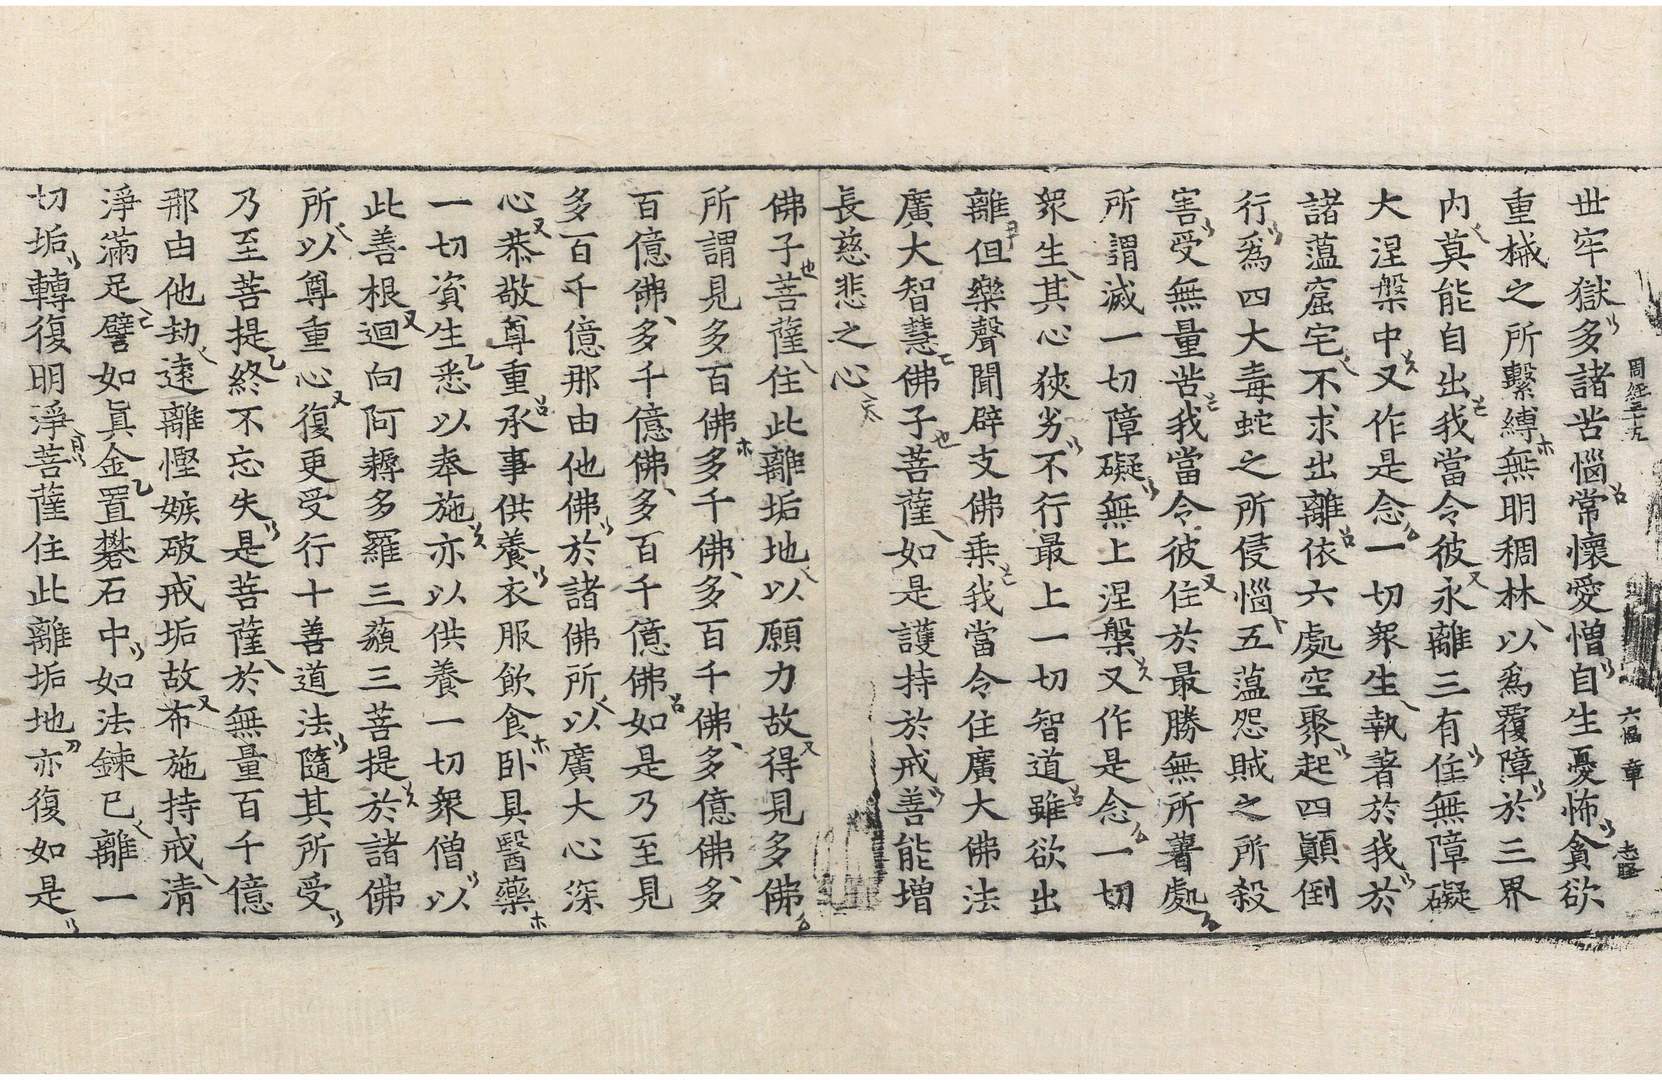 周經三十九 六幅 章
世牢獄多諸苦惱常懷愛憎自生憂怖貪欲
重械之所繫縛無明稠林以爲覆障於三界
内莫能自出我當令彼永離三有住無障礙
大涅槃中又作是念一切衆生執著於我於
諸薀窟宅不求出離依六處空聚起四顚倒
行爲四大毒蛇之所侵惱五薀怨賊之所殺
害受無量苦我當令彼住於最勝無所著處
所謂滅一切障礙無上涅槃又作是念一切
衆生其心狹劣不行最上一切智道雖欲出
離但樂聲聞辟支佛乘我當令住廣大佛法
廣大智慧佛子菩薩如是護持於戒善能增
長慈悲之心
佛子菩薩住此離垢地以願力故得見多佛
所謂見多百佛多千佛多百千佛多億佛多
百億佛多千億佛多百千億佛如是乃至見
多百千億那由他佛於諸佛所以廣大心深
心恭敬尊重承事供養衣服飲食卧具醫藥
一切資生悉以奉施亦以供養一切衆僧以
此善根迴向阿耨多羅三藐三菩提於諸佛
所以尊重心復更受行十善道法隨其所受
乃至菩提終不忘失是菩薩於無量百千億
那由他劫遠離慳嫉破戒垢故布施持戒清
淨滿足譬如眞金置礬石中如法鍊已離一
切垢轉復明淨菩薩住此離垢地亦復如是